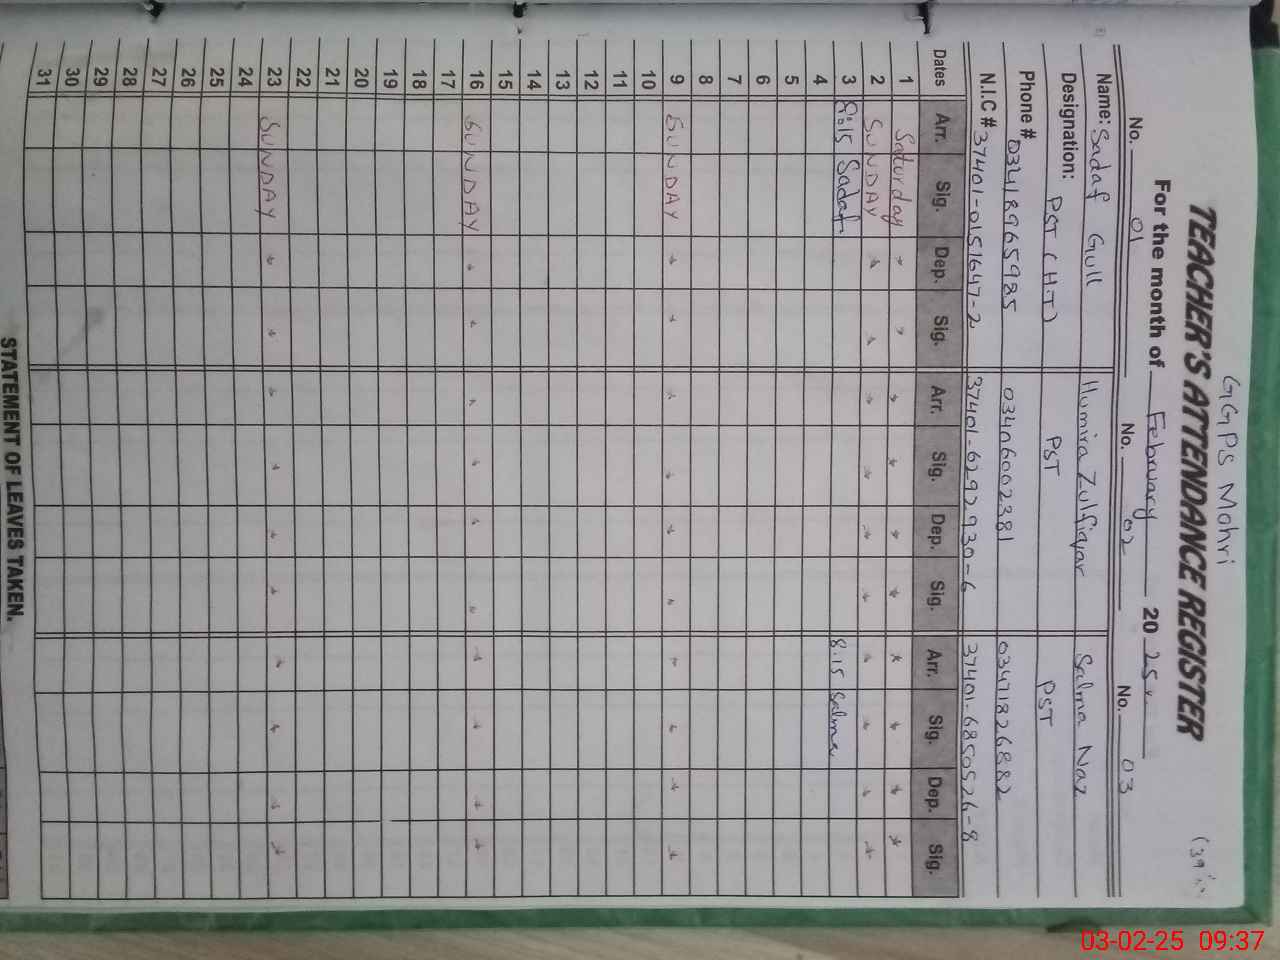 GGPS Mohri
TEACHER'S ATTENDANCE REGISTER
For the month of February 2025
No. 01 No. 02 No. 03
Name: Sadaf Gull Humira Zulfiqar Salma Naz
Designation: PST (H.T) PST PST
Phone # 03418965985 03406002381 03471826882
N.I.C # 37401-0151647-2 37401-6292930-6 37401-6850526-8
Dates Arr. Sig. Dep. Sig. Arr. Sig. Dep. Sig. Arr. Sig. Dep. Sig.
1 Saturday
2 SUNDAY
3 8:15 Sadaf 8:15 Salma
4
5
6
7
8
9 SUNDAY
10
11
12
13
14
15
16 SUNDAY
17
18
19
20
21
22
23 SUNDAY
24
25
26
27
28
29
30
31
STATEMENT OF LEAVES TAKEN.
03-02-25 09:37